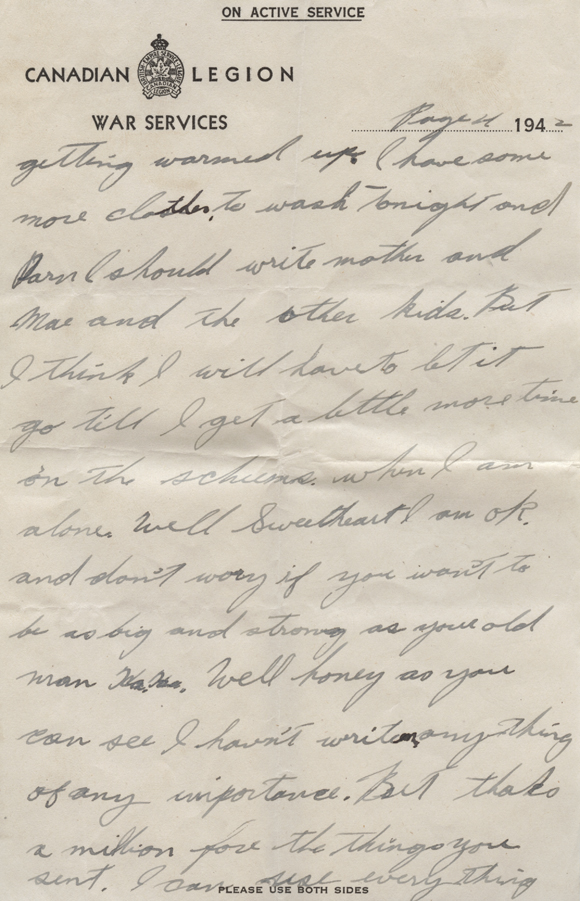 ON ACTIVE SERVICE
CANADIAN LEGION
WAR SERVICES
Page 4 1942
getting warmed up. I have some
more clothes, to wash tonight and
Darn I should write mother and
Mae and the other kids. But
I think I will have to let it
go till I get a little more time
on the when I am
alone. Well Sweetheart I am ok.
and don't wory if you want to
be as big and strong as your old
man Ha. Ha. Well honey as you
can see I havn't writen any thing
of any importance. But thaks
a million fore the things you
sent. I can use every thing
PLEASE USE BOTH SIDES